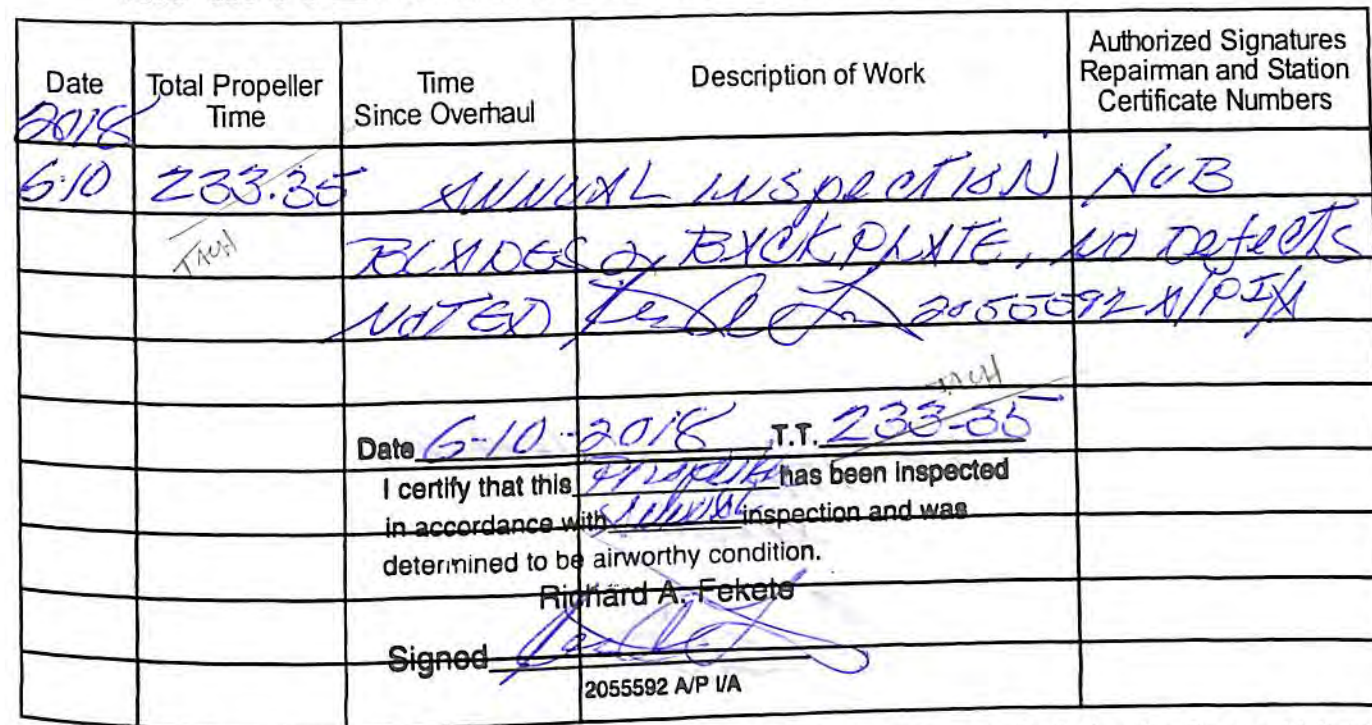 Date Total Propeller Time Time Since Overhaul Description of Work Authorized Signatures Repairman and Station Certificate Numbers
2018
6-10 233.35 ANNUAL INSPECTION HUB
TACH BLADES & BACKPLATE, NO DEFECTS
NOTED 2055592 A/P I/A
TACH
Date 6-10-2018 T.T. 233.35
I certify that this Propeller has been inspected
in accordance with Annual inspection and was
determined to be airworthy condition.
Richard A. Fekete
Signed
2055592 A/P I/A